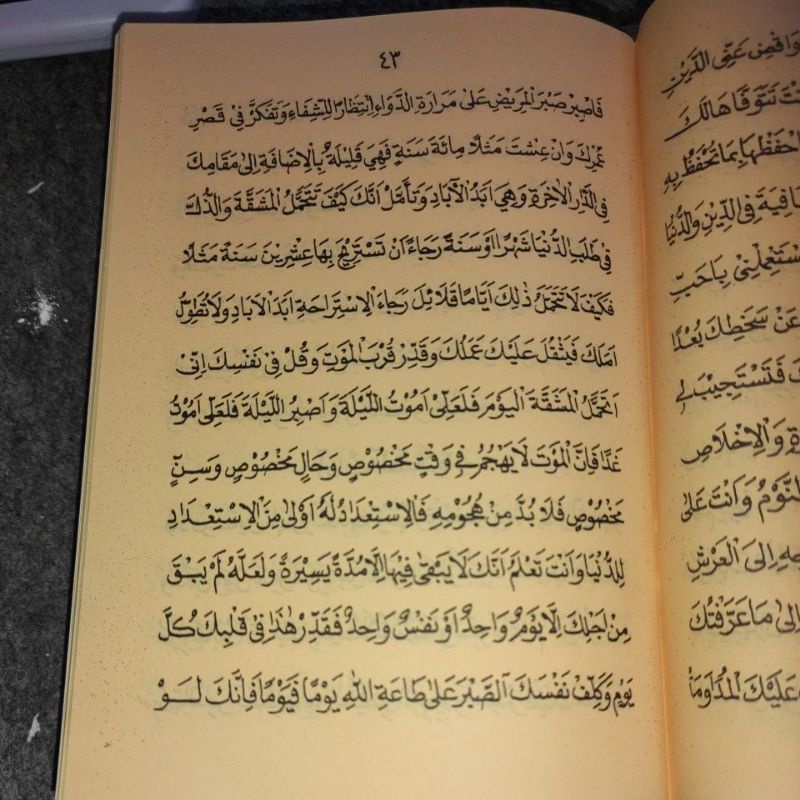 ٤٣
فَاصْبِرْ صَبْرَ الْمَرِيْضِ عَلٰى مَرَارَةِ الدَّوَاءِ اِنْتِظَارًا لِلشِّفَاءِ وَتَفَكَّرْ فِيْ قَصْرِ
عُمْرِكَ وَاِنْ عِشْتَ مَثَلًا مِائَةَ سَنَةٍ فَهِيَ قَلِيْلَةٌ بِالْاِضَافَةِ اِلٰى مَقَامِكَ
فِي الدَّارِ الْاٰخِرَةِ وَهِيَ اَبَدُ الْاٰبَادِ وَتَأَمَّلْ اَنَّكَ كَيْفَ تَتَحَمَّلُ الْمَشَقَّةَ وَالذُّلَّ
فِيْ طَلَبِ الدُّنْيَا شَهْرًا اَوْ سَنَةً رَجَاءَ اَنْ تَسْتَرِيْحَ بِهَا عِشْرِيْنَ سَنَةً مَثَلًا
فَكَيْفَ لَا تَتَحَمَّلُ ذٰلِكَ اَيَّامًا قَلَائِلَ رَجَاءَ الْاِسْتِرَاحَةِ اَبَدَ الْاٰبَادِ وَلَا تُطَوِّلْ
اَمَلَكَ فَيَثْقُلَ عَلَيْكَ عَمَلُكَ وَقَدِّرْ قُرْبَ الْمَوْتِ وَقُلْ فِيْ نَفْسِكَ اِنِّيْ
اَتَحَمَّلُ الْمَشَقَّةَ الْيَوْمَ فَلَعَلِّيْ اَمُوْتُ اللَّيْلَةَ وَاَصْبِرُ اللَّيْلَةَ فَلَعَلِّيْ اَمُوْتُ
غَدًا فَاِنَّ الْمَوْتَ لَا يَهْجُمُ فِيْ وَقْتٍ مَخْصُوْصٍ وَحَالٍ مَخْصُوْصٍ وَسِنٍّ
مَخْصُوْصٍ فَلَا بُدَّ مِنْ هُجُوْمِهِ فَالْاِسْتِعْدَادُ لَهُ اَوْلٰى مِنَ الْاِسْتِعْدَادِ
لِلدُّنْيَا وَاَنْتَ تَعْلَمُ اَنَّكَ لَا يَبْقٰى فِيْهَا اِلَّا مُدَّةً يَسِيْرَةً وَلَعَلَّهُ لَمْ يَبْقَ
مِنْ اَجَلِكَ اِلَّا يَوْمٌ وَاحِدٌ اَوْ نَفْسٌ وَاحِدٌ فَقَدِّرْ هٰذَا فِيْ قَلْبِكَ كُلَّ
يَوْمٍ وَكَلِّفْ نَفْسَكَ الصَّبْرَ عَلٰى طَاعَةِ اللهِ يَوْمًا فَيَوْمًا فَاِنَّكَ لَوْ
وَاقْضِ عَنِّى الدَّيْنَ
تَتَوَفَّاهَا لَكَ
احْفَظْهَا بِمَا تَحْفَظُ بِهِ
فِي الدِّيْنِ وَالدُّنْيَا
بِاَحَبِّ
عَنْ سَخَطِكَ بُعْدًا
فَتَسْتَجِيْبَ لِيْ
وَالْاِخْلَاصِ
النَّوْمُ وَاَنْتَ عَلٰى
اِلَى الْعَرْشِ
اِلٰى مَا عَرَّفْتُكَ
عَلَيْكَ الْمُدَاوَمَةُ